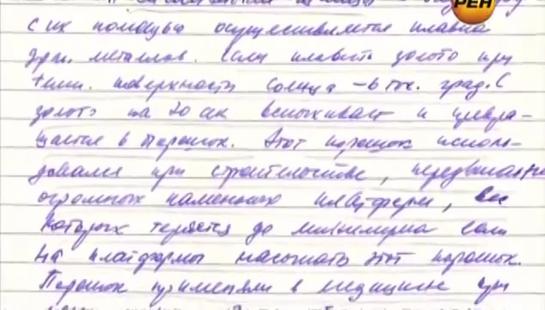 РЕН
с их помощью осуществляется плавка
драг. металлов. Если плавить золото при
темп. поверхности солнца – 6 тыс. град. С
золото на 70 сек вспыхивает и превра-
щается в порошок. Этот порошок исполь-
довался при строительстве, передвигая
огромных каменных платформ, вес
которых теряется до минимума если
на платформы насыпать этот порошок.
Порошок применяли в медицине при